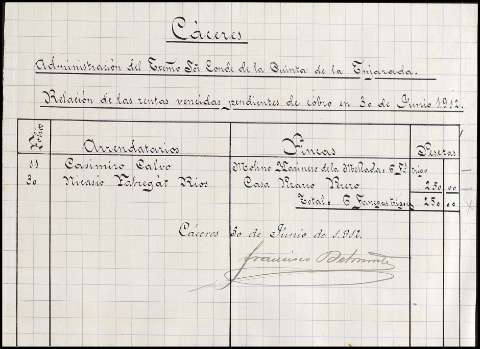 Cáceres
Administración del Excmo Sor Conde de la Quinta de la Enjarada.
Relación de las rentas vencidas pendientes de cobro en 30 de Junio 1912.
Folios Arrendatarios Fincas Pesetas
11 Casimiro Calvo Molino Harinero de la 6 Fs trigo
30 Nicasio Fabregat Rios Casa 250 00
Total. 6 Fanegas trigo 250 00
Cáceres 30 de Junio de 1.912.
Francisco Belmonte